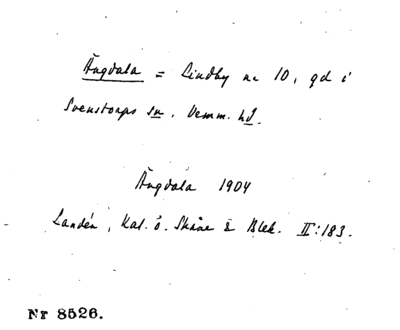 Ängdala = Lindby nr 10, gd i
Svenstorps sn, Vemm. hd.
Ängdala 1904
Landén, Kat. ö. Skåne & Blek. II:183.
Nr 8526.